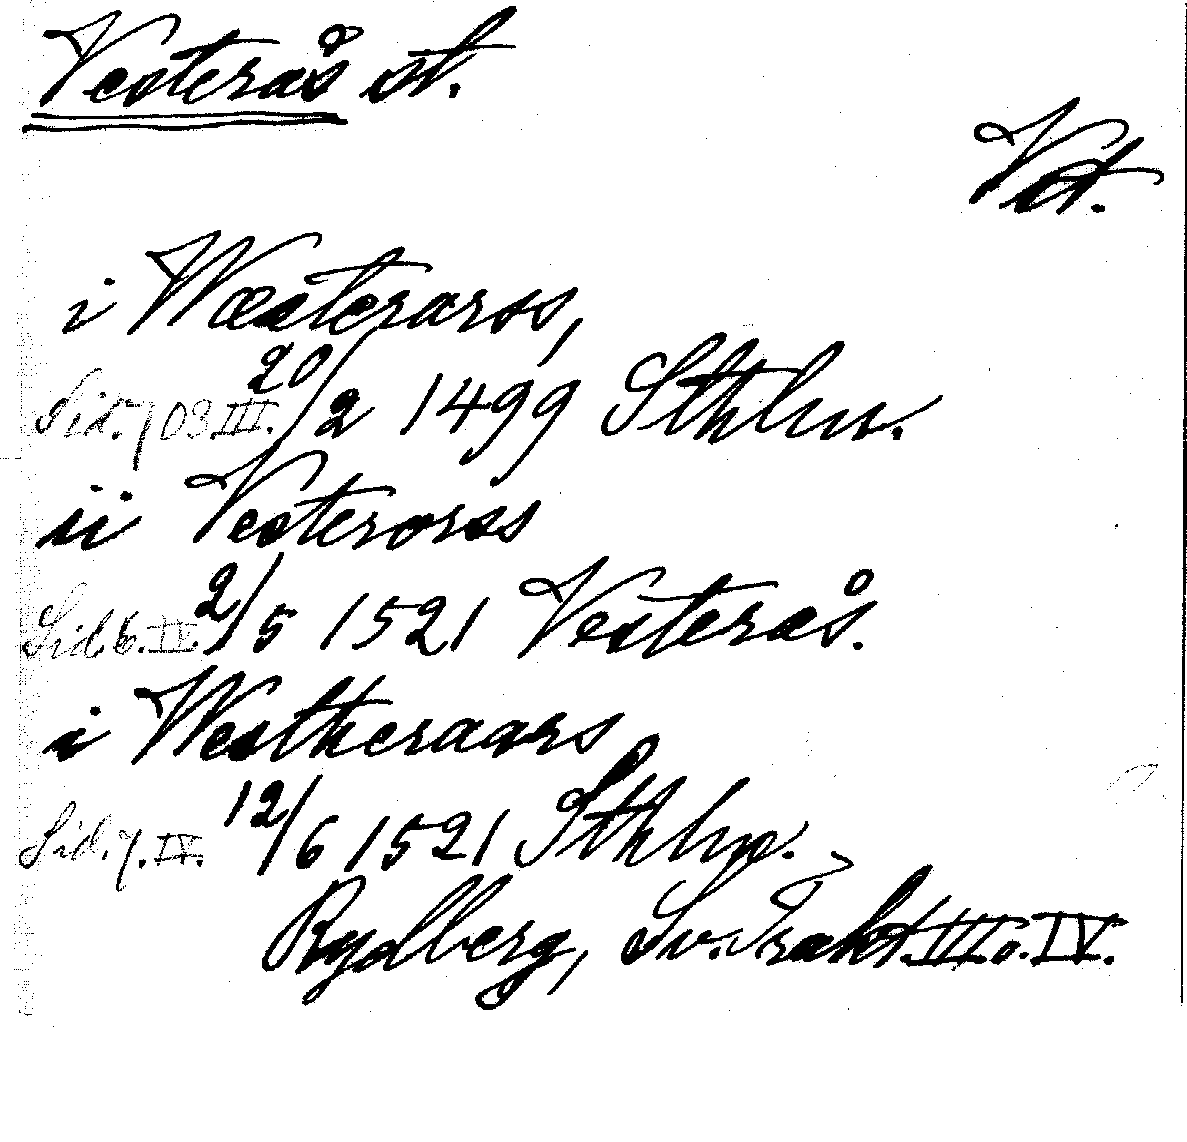 Vesterås st.
Vst.
i Wæsterarss,
Sid. 703.III. 20/2 1499 Sthlm.
ii Vesterorss
Sid. 6. IV. 2/5 1521 Vesterås.
i Westheraars
Sid. 7. IV. 12/6 1521 Sthlm.
Rydberg, Sv. Trakt. III o. IV.